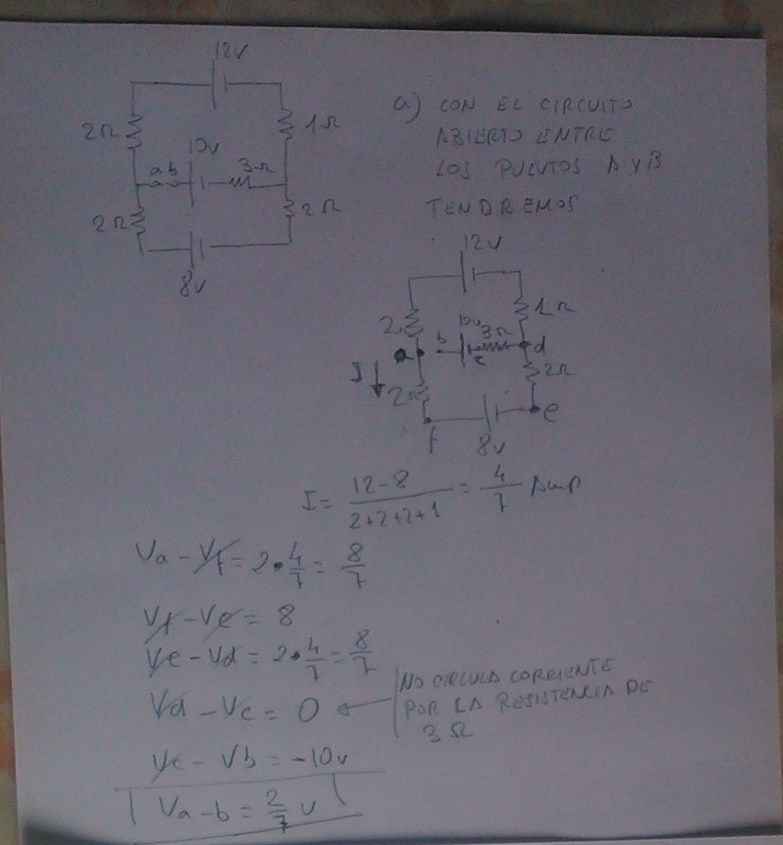 12v
2Ω
1Ω
10v
a b
3Ω
2Ω
2Ω
8v
a) CON EL CIRCUITO
ABIERTO ENTRE
LOS PUNTOS A Y B
TENDREMOS
12v
2Ω
1Ω
10v
3Ω
a
b
c
d
I
2Ω
2Ω
f
8v
e
I = 12-8 / 2+2+2+1 = 4/7 Amp
Va - Vf = 2·4/7 = 8/7
Vf - Ve = 8
Ve - Vd = 2·4/7 = 8/7
Vd - Vc = 0
NO CIRCULA CORRIENTE
POR LA RESISTENCIA DE
3Ω
Vc - Vb = -10v
Va-b = 2/7 v